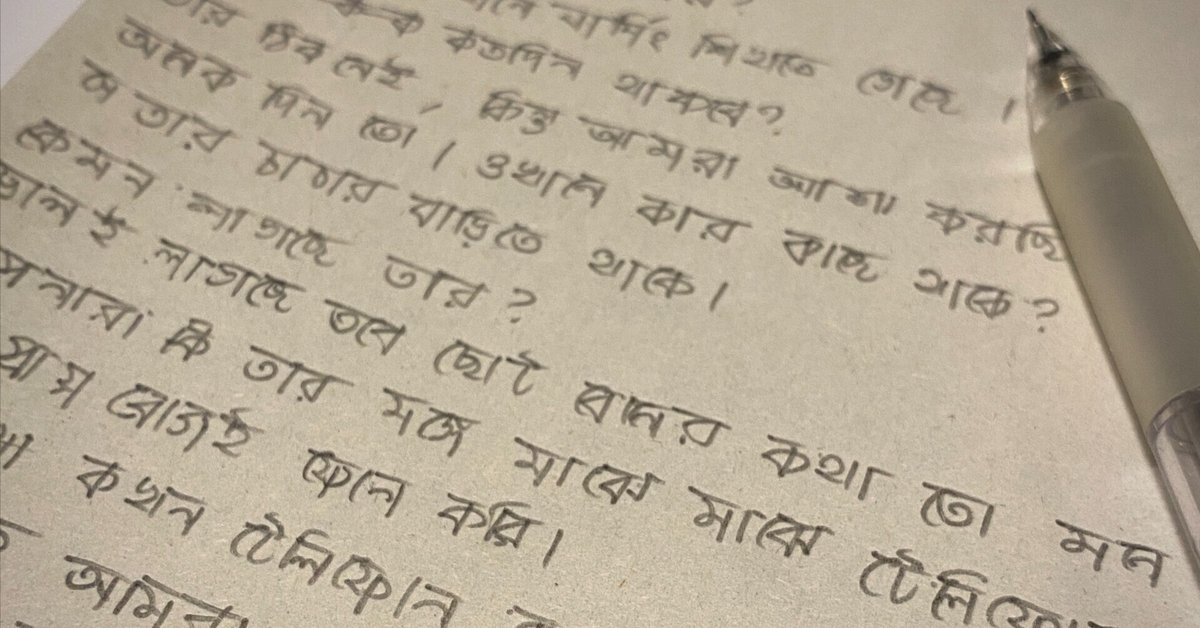 নার্সিং শিখতে গেছে ।
কতদিন থাকবে?
তার ঠিক নেই, কিন্তু আমরা আশা করছি
অনেক দিন তো । ওখানে কার কাছে থাকে?
তার চাচার বাড়িতে থাকে ।
কেমন লাগছে তার ?
ভালই লাগছে তবে ছোট বোনের কথা তো মনে
কি তার সঙ্গে মাঝে মাঝে
প্রায় রোজই ফোন করি ।
কখন টেলিফোন
আমরা